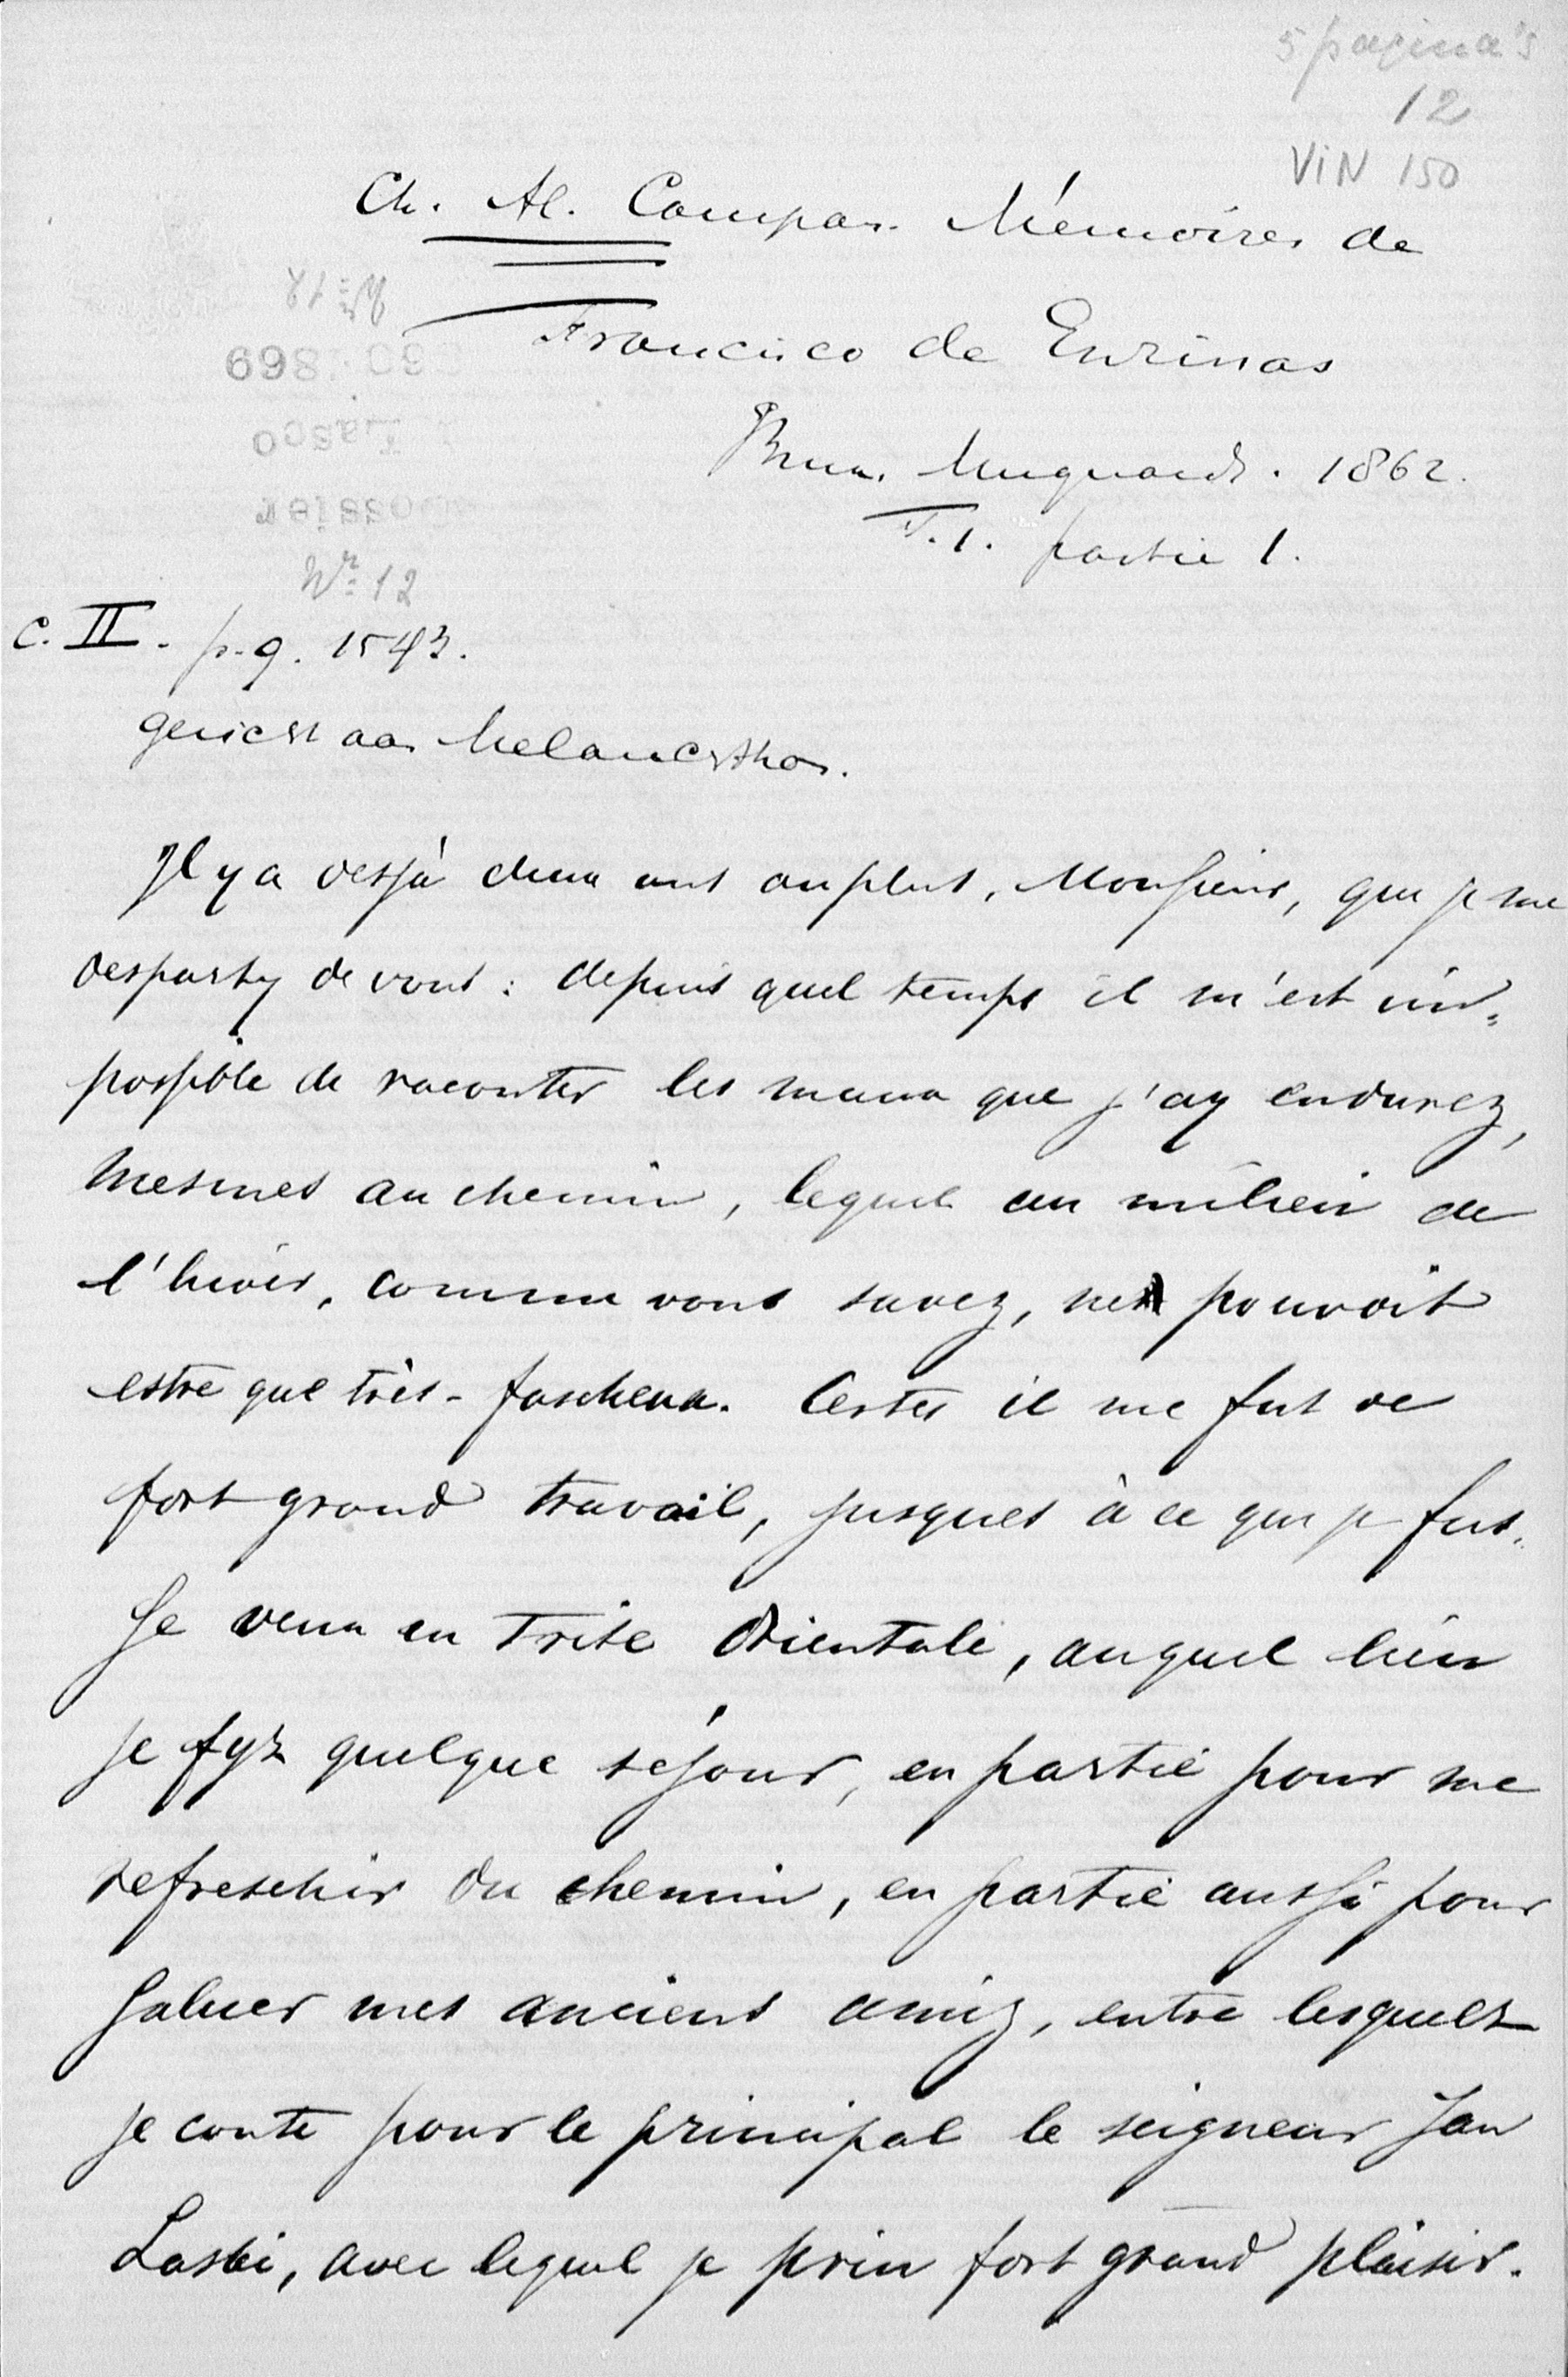 5 pagina's
12
VIN 150
Ch. Al. Campan. Mémoires de
Francisco de Enzinas
Brux. Muquardt. 1862.
T. 1. partie 1.
Nr 12
69
Lasco
dossier
Nr 12
C. II. p. 9. 1543.
gericht aan Melanchthon.
Il y a desjà deux ans ou plus, Monsieur, que je me
desparty de vous: depuis quel temps il m'est im=
possible de raconter les maux que j'ay endurez,
mesmes au chemin, lequel au milieu de
l'hiver, comme vous savez, ne pouvoit
estre que très-fascheux. Certes il me fut de
fort grand travail, jusques à ce que je fus=
se venu en Frise Orientale, auquel lieu
je fyz quelque séjour, en partie pour me
refreschir du chemin, en partie aussi pour
saluer mes anciens amiz, entre lesquelz
je conte pour le principal le seigneur Jan
Laski, avec lequel je prin fort grand plaisir.